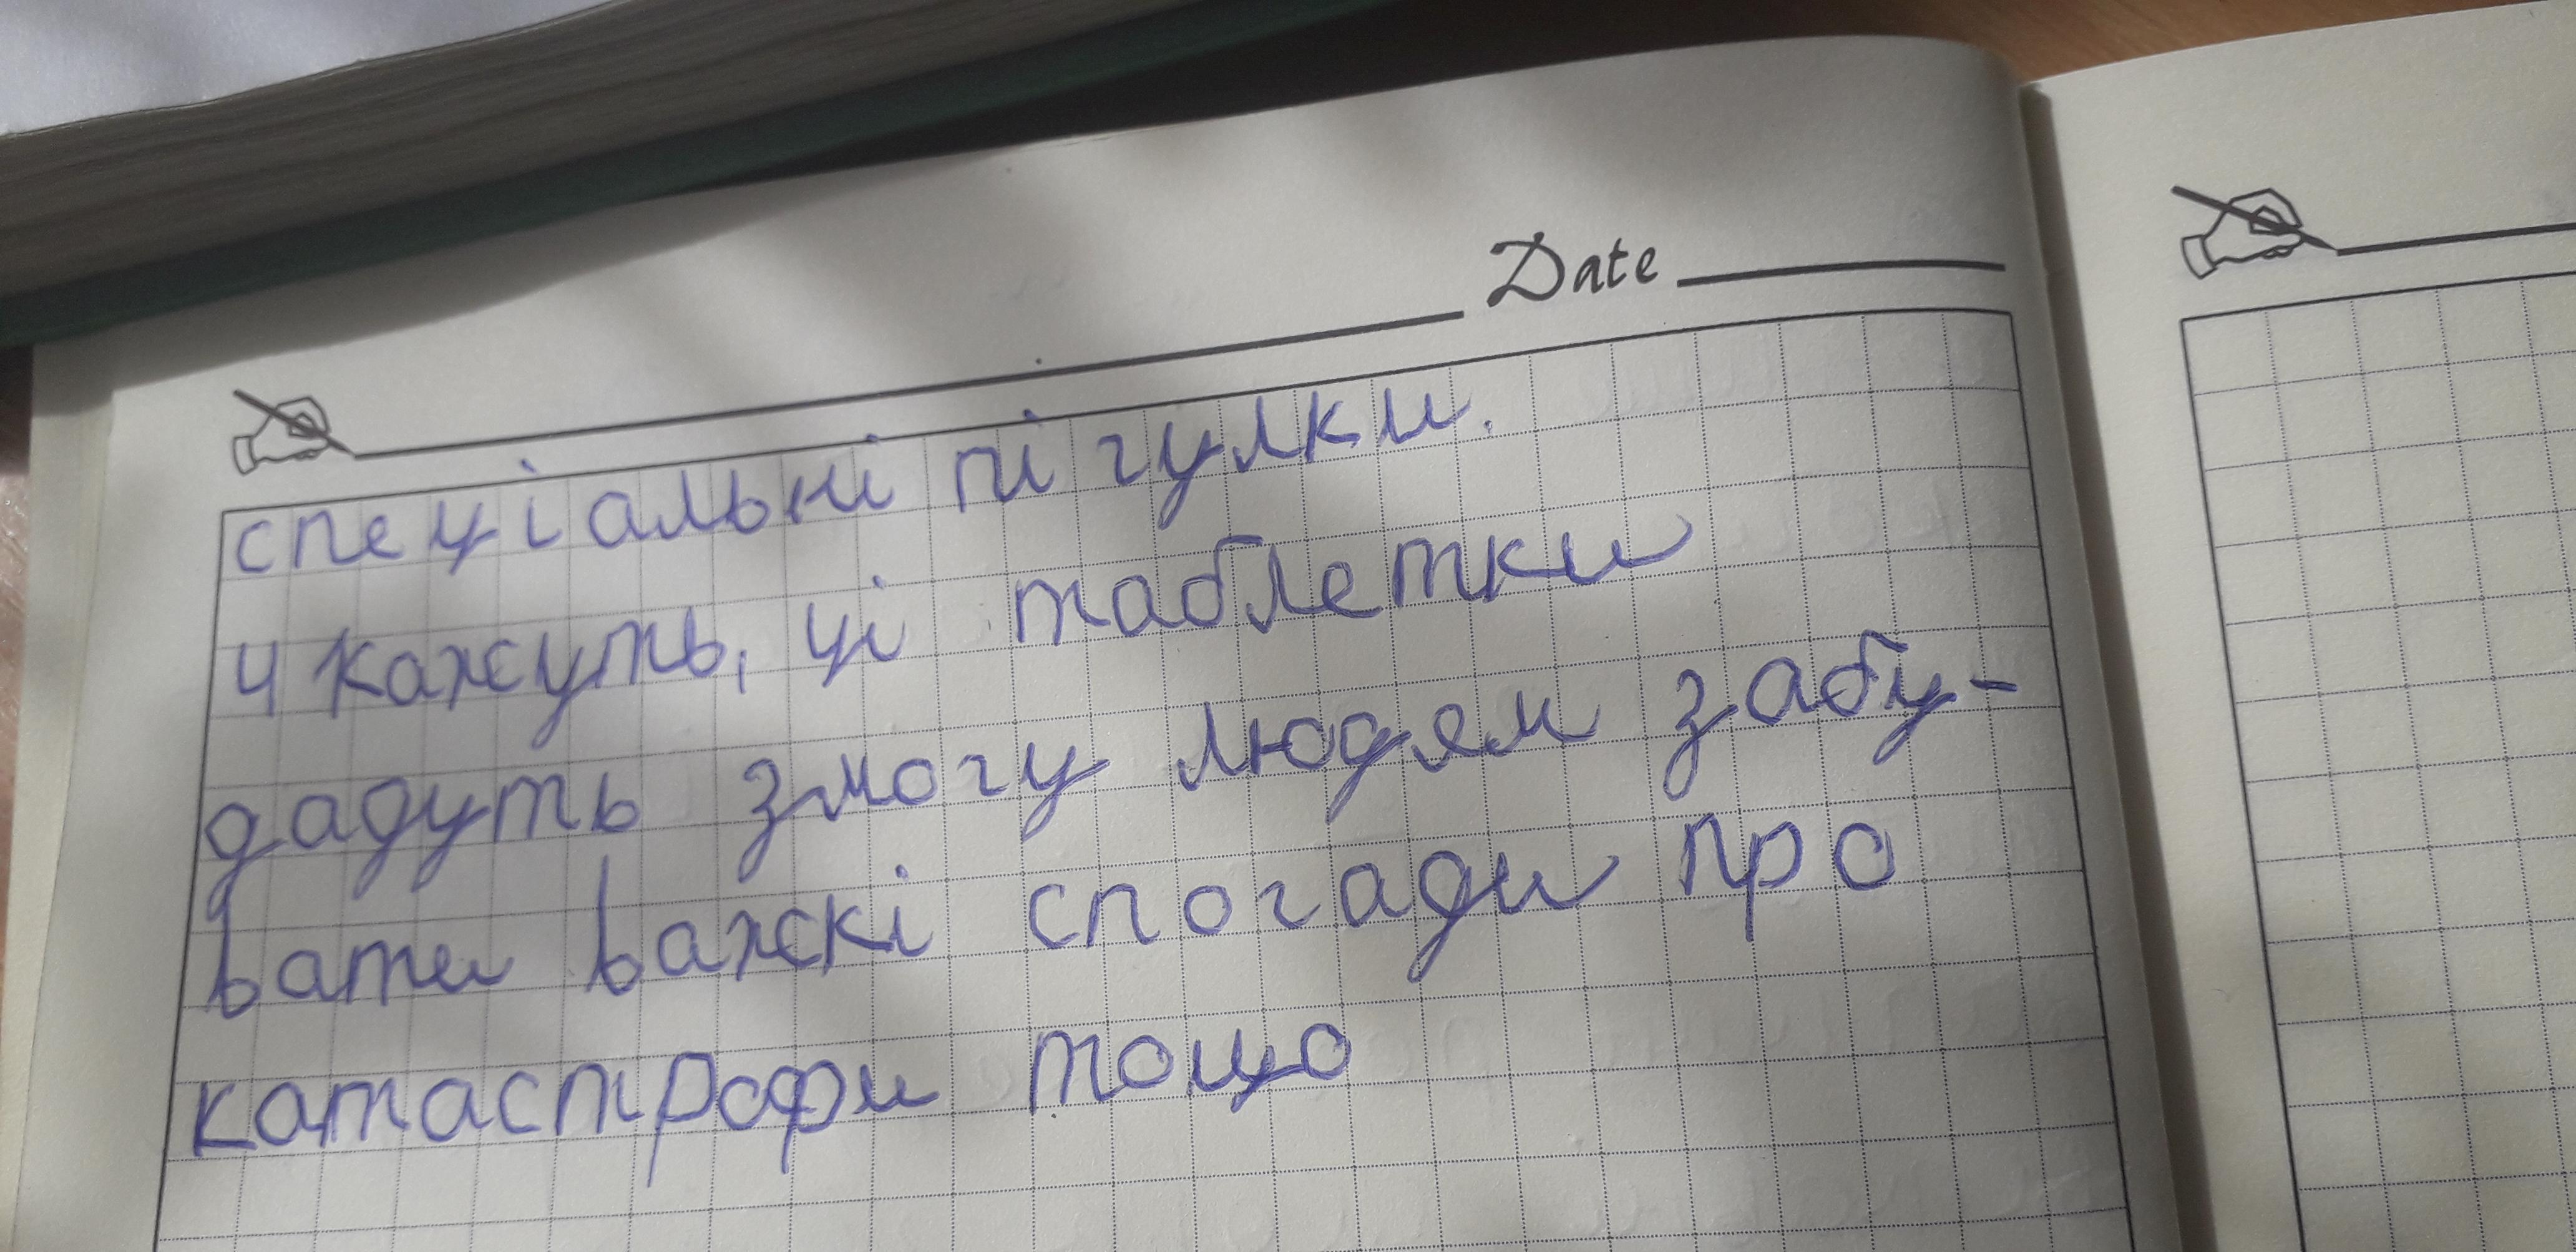 Date
спеціальні пігулки.
Ч кажуть, ці таблетки
дадуть змогу людям забу-
вати важкі спогади про
катастрофи тощо